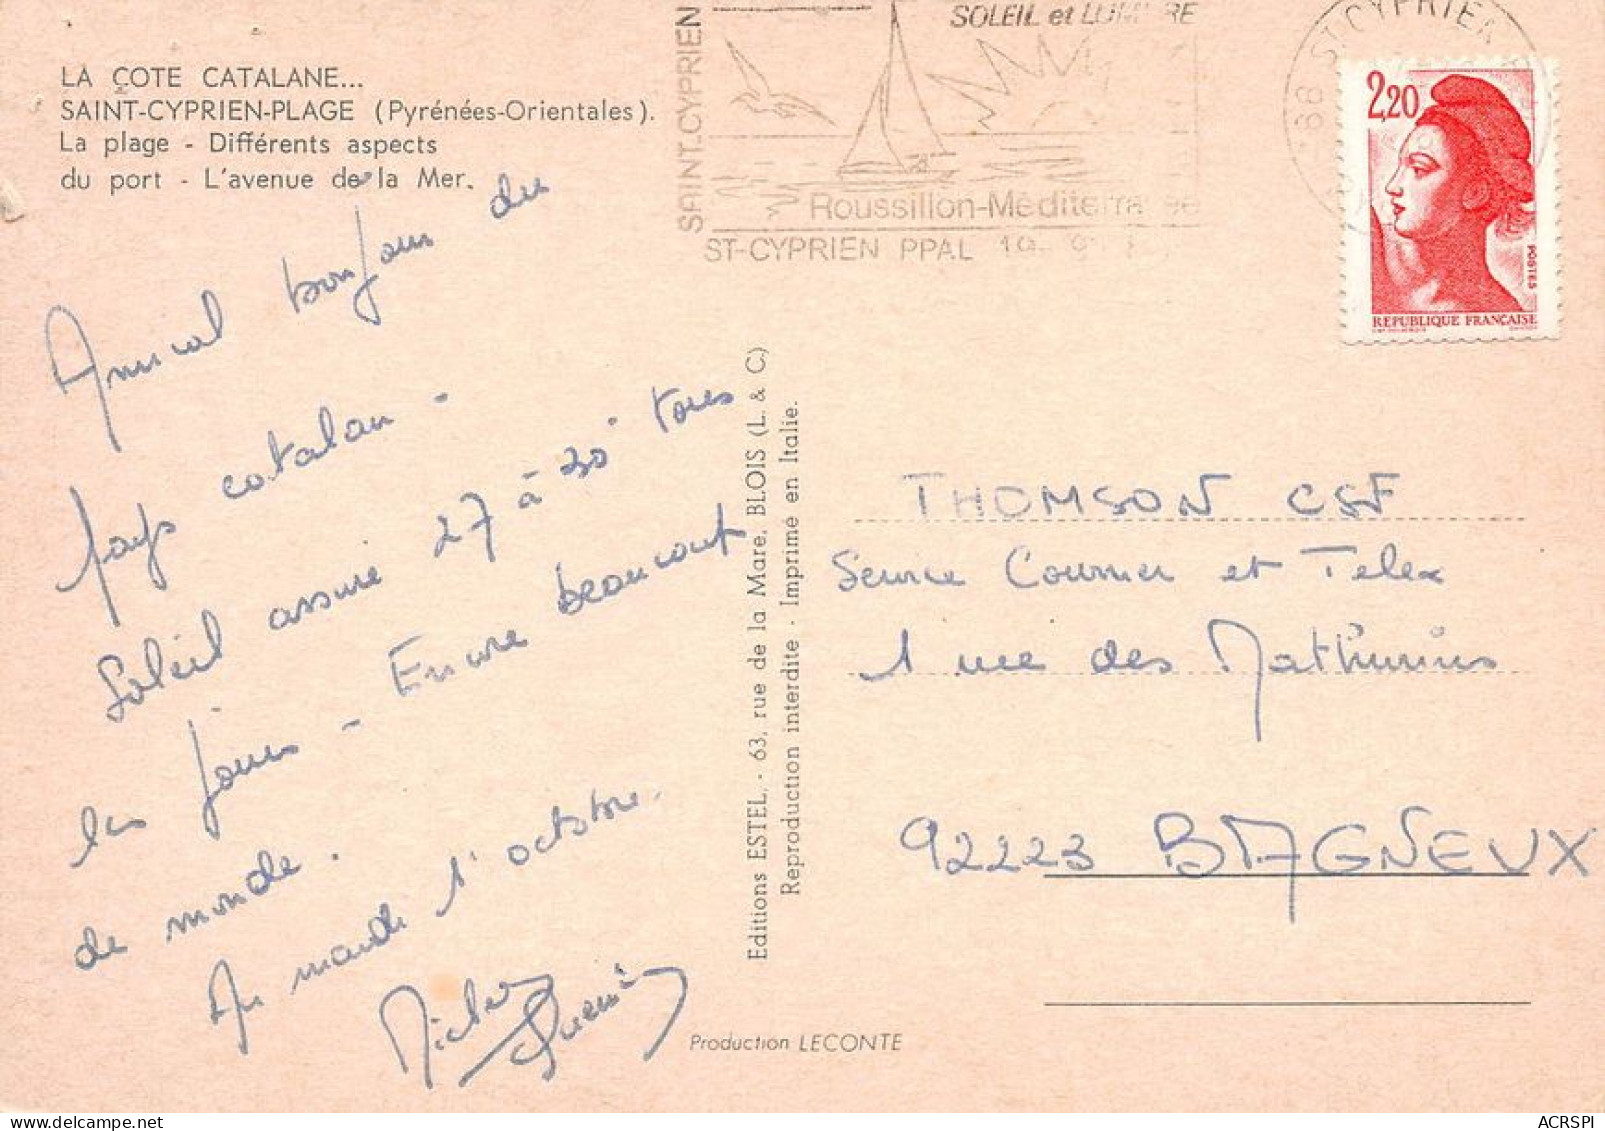 LA COTE CATALANE...
SAINT-CYPRIEN-PLAGE (Pyrénées-Orientales).
La plage - Différents aspects
du port - L'avenue de la Mer.
SAINT.CYPRIEN
SOLEIL et LUMIERE
Roussillon-Méditerranée
ST-CYPRIEN PPAL
66 ST CYPRIEN
2,20
POSTES
REPUBLIQUE FRANÇAISE
Amical bonjour du
pays catalan -
Soleil assuré 27 à 30° tous
les jours - Encore beaucoup
de monde.
Au mardi 1° octobre.
Editions ESTEL. - 63, rue de la Mare. BLOIS (L. & C.)
Reproduction interdite - Imprimé en Italie.
THOMSON CSF
Service Courrier et Telex
1 rue des Mathurins
92223 BAGNEUX
Production LECONTE
ACRSPI